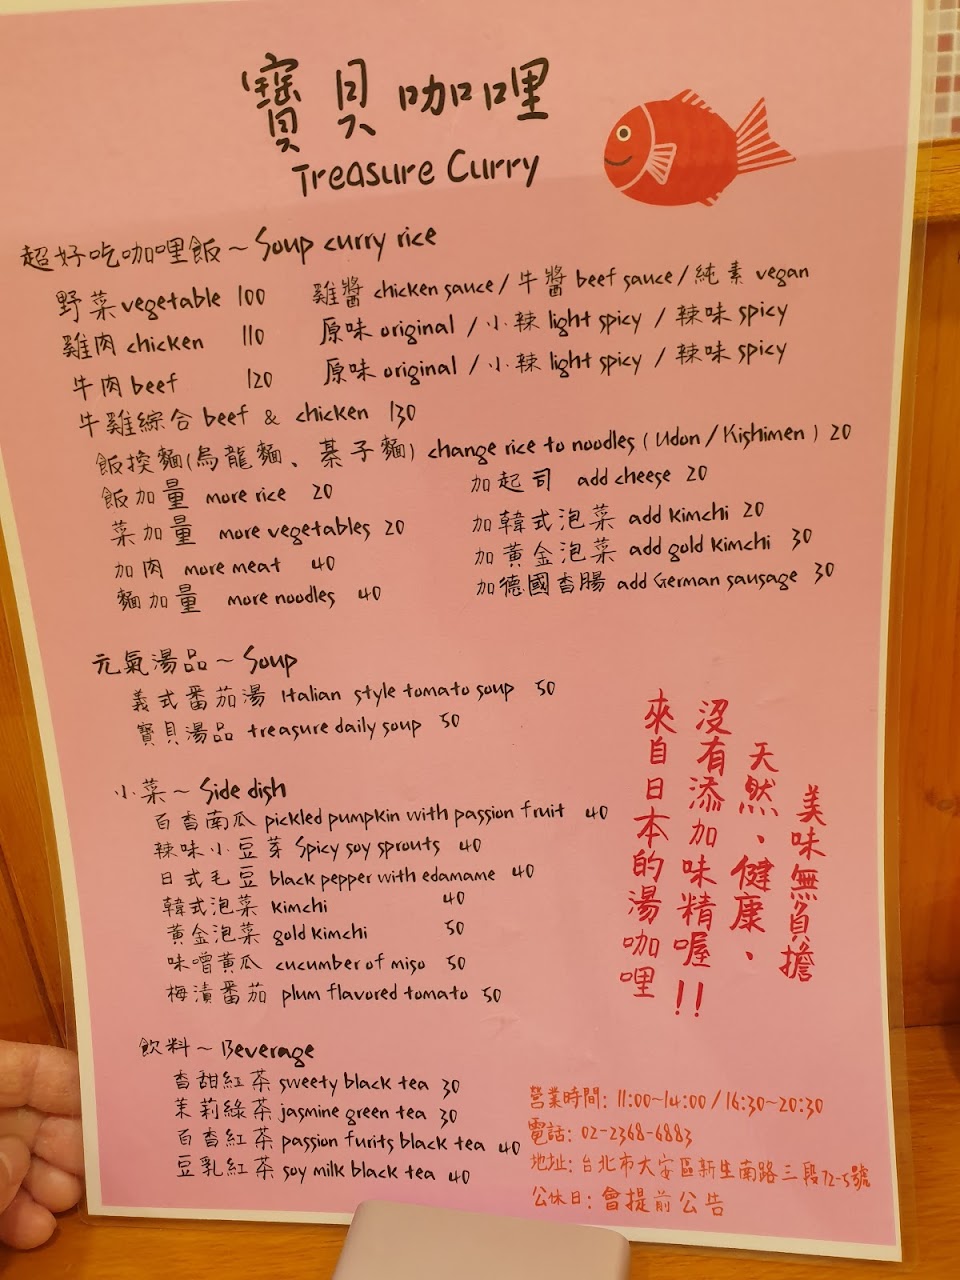 寶貝咖哩
Treasure Curry
超好吃咖哩飯~Soup curry rice
野菜 vegetable 100 雞醬 chicken sauce/牛醬 beef sauce/純素 vegan
雞肉 chicken 110 原味 original /小辣 light spicy / 辣味 spicy
牛肉 beef 120 原味 original /小辣 light spicy / 辣味 spicy
牛雞綜合 beef & chicken 130
飯換麵(烏龍麵、棊子麵) change rice to noodles (Udon/Kishimen) 20
飯加量 more rice 20 加起司 add cheese 20
菜加量 more vegetables 20 加韓式泡菜 add kimchi 20
加肉 more meat 40 加黃金泡菜 add gold kimchi 30
麵加量 more noodles 40 加德國香腸 add German sausage 30
元氣湯品~Soup
義式番茄湯 Italian style tomato soup 50
寶貝湯品 treasure daily soup 50
小菜~Side dish
百香南瓜 pickled pumpkin with passion fruit 40
辣味小豆芽 Spicy soy sprouts 40
日式毛豆 black pepper with edamame 40
韓式泡菜 kimchi 40
黃金泡菜 gold kimchi 50
味噌黃瓜 cucumber of miso 50
梅漬番茄 plum flavored tomato 50
美味無負擔
天然、健康、
沒有添加味精喔!!
來自日本的湯咖哩
飲料~Beverage
香甜紅茶 sweety black tea 30
茉莉綠茶 jasmine green tea 30
百香紅茶 passion furits black tea 40
豆乳紅茶 soy milk black tea 40
營業時間: 11:00~14:00/16:30~20:30
電話: 02-2368-6883
地址: 台北市大安區新生南路三段72-5號
公休日: 會提前公告